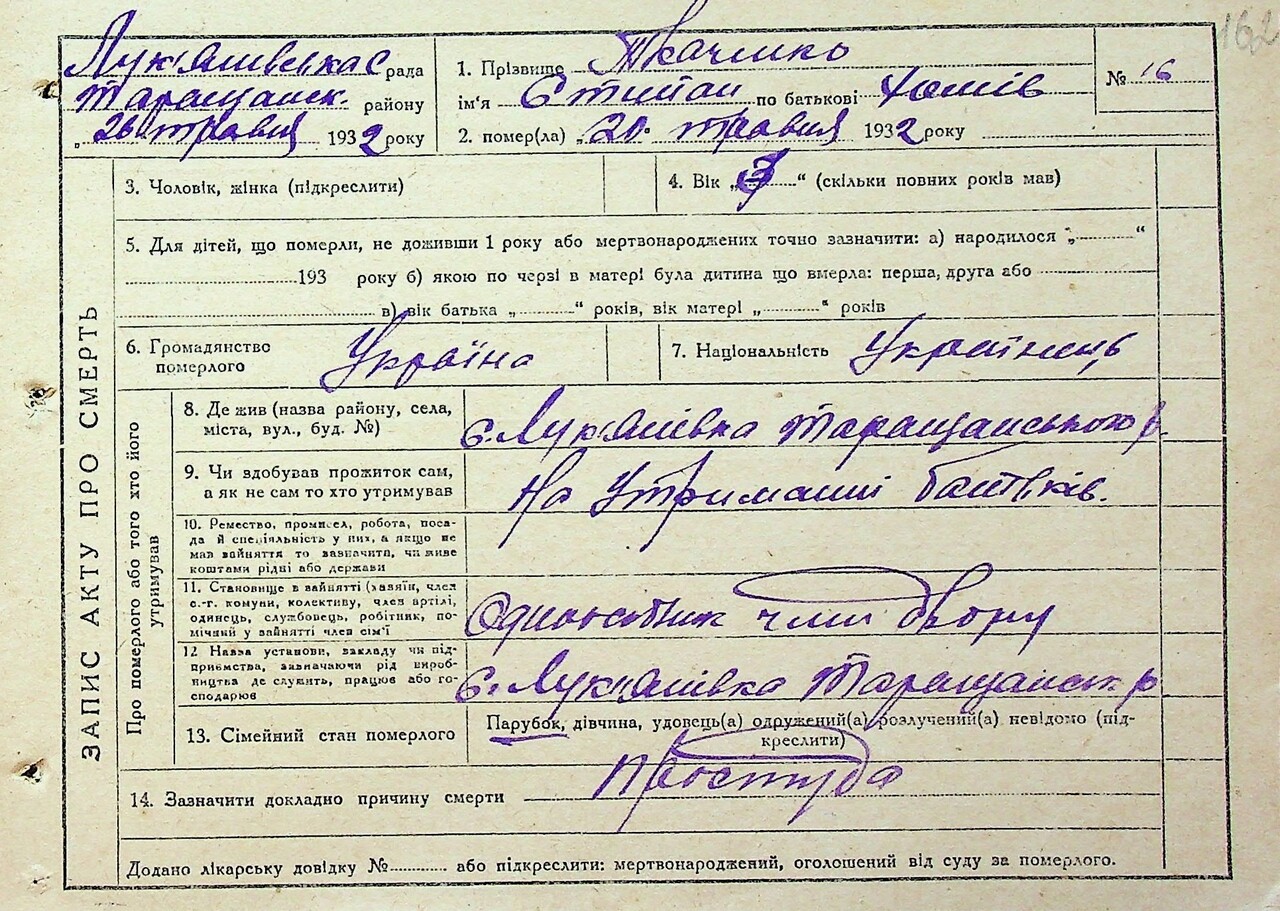 162
Лук'янівська с рада
Таращанськ. району
„26 травня 1932 року
1. Прізвище Ткаченко
ім'я Степан по батькові Хомів
2. помер(ла) „20. травня 1932 року
№ 16
ЗАПИС АКТУ ПРО СМЕРТЬ
3. Чоловік, жінка (підкреслити)
4. Вік „3“ (скільки повних років мав)
5. Для дітей, що померли, не доживши 1 року або мертвонароджених точно зазначити: а) народилося „ “
193 року б) якою по черзі в матері була дитина що вмерла: перша, друга або
в) вік батька „ “ років, вік матері „ “ років
6. Громадянство
померлого
Україна
7. Національність Українець
Про померлого або того хто його
утримував
8. Де жив (назва району, села,
міста, вул., буд. №)
с. Лук'янівка Таращанського р.
9. Чи здобував прожиток сам,
а як не сам то хто утримував
На утриманні батьків.
10. Ремество, промисел, робота, поса-
да й спеціальність у них, а якщо не
мав зайняття то зазначити, чи живе
коштами рідні або держави
11. Становище в зайнятті (хазяїн, член
с.-г. комуни, колективу, член артілі,
одинець, службовець, робітник, по-
мічний у зайнятті член сім'ї
Одноосібник член двору
12 Назва установи, закладу чи під-
приємства, зазначаючи рід вироб-
ництва де служить, працює або го-
сподарює
с. Лук'янівка Таращанськ р
13. Сімейний стан померлого
Парубок, дівчина, удовець(а) одружений(а) розлучений(а) невідомо (під-
креслити)
14. Зазначити докладно причину смерти Простуда
Додано лікарську довідку № або підкреслити: мертвонароджений, оголошений від суду за померлого.